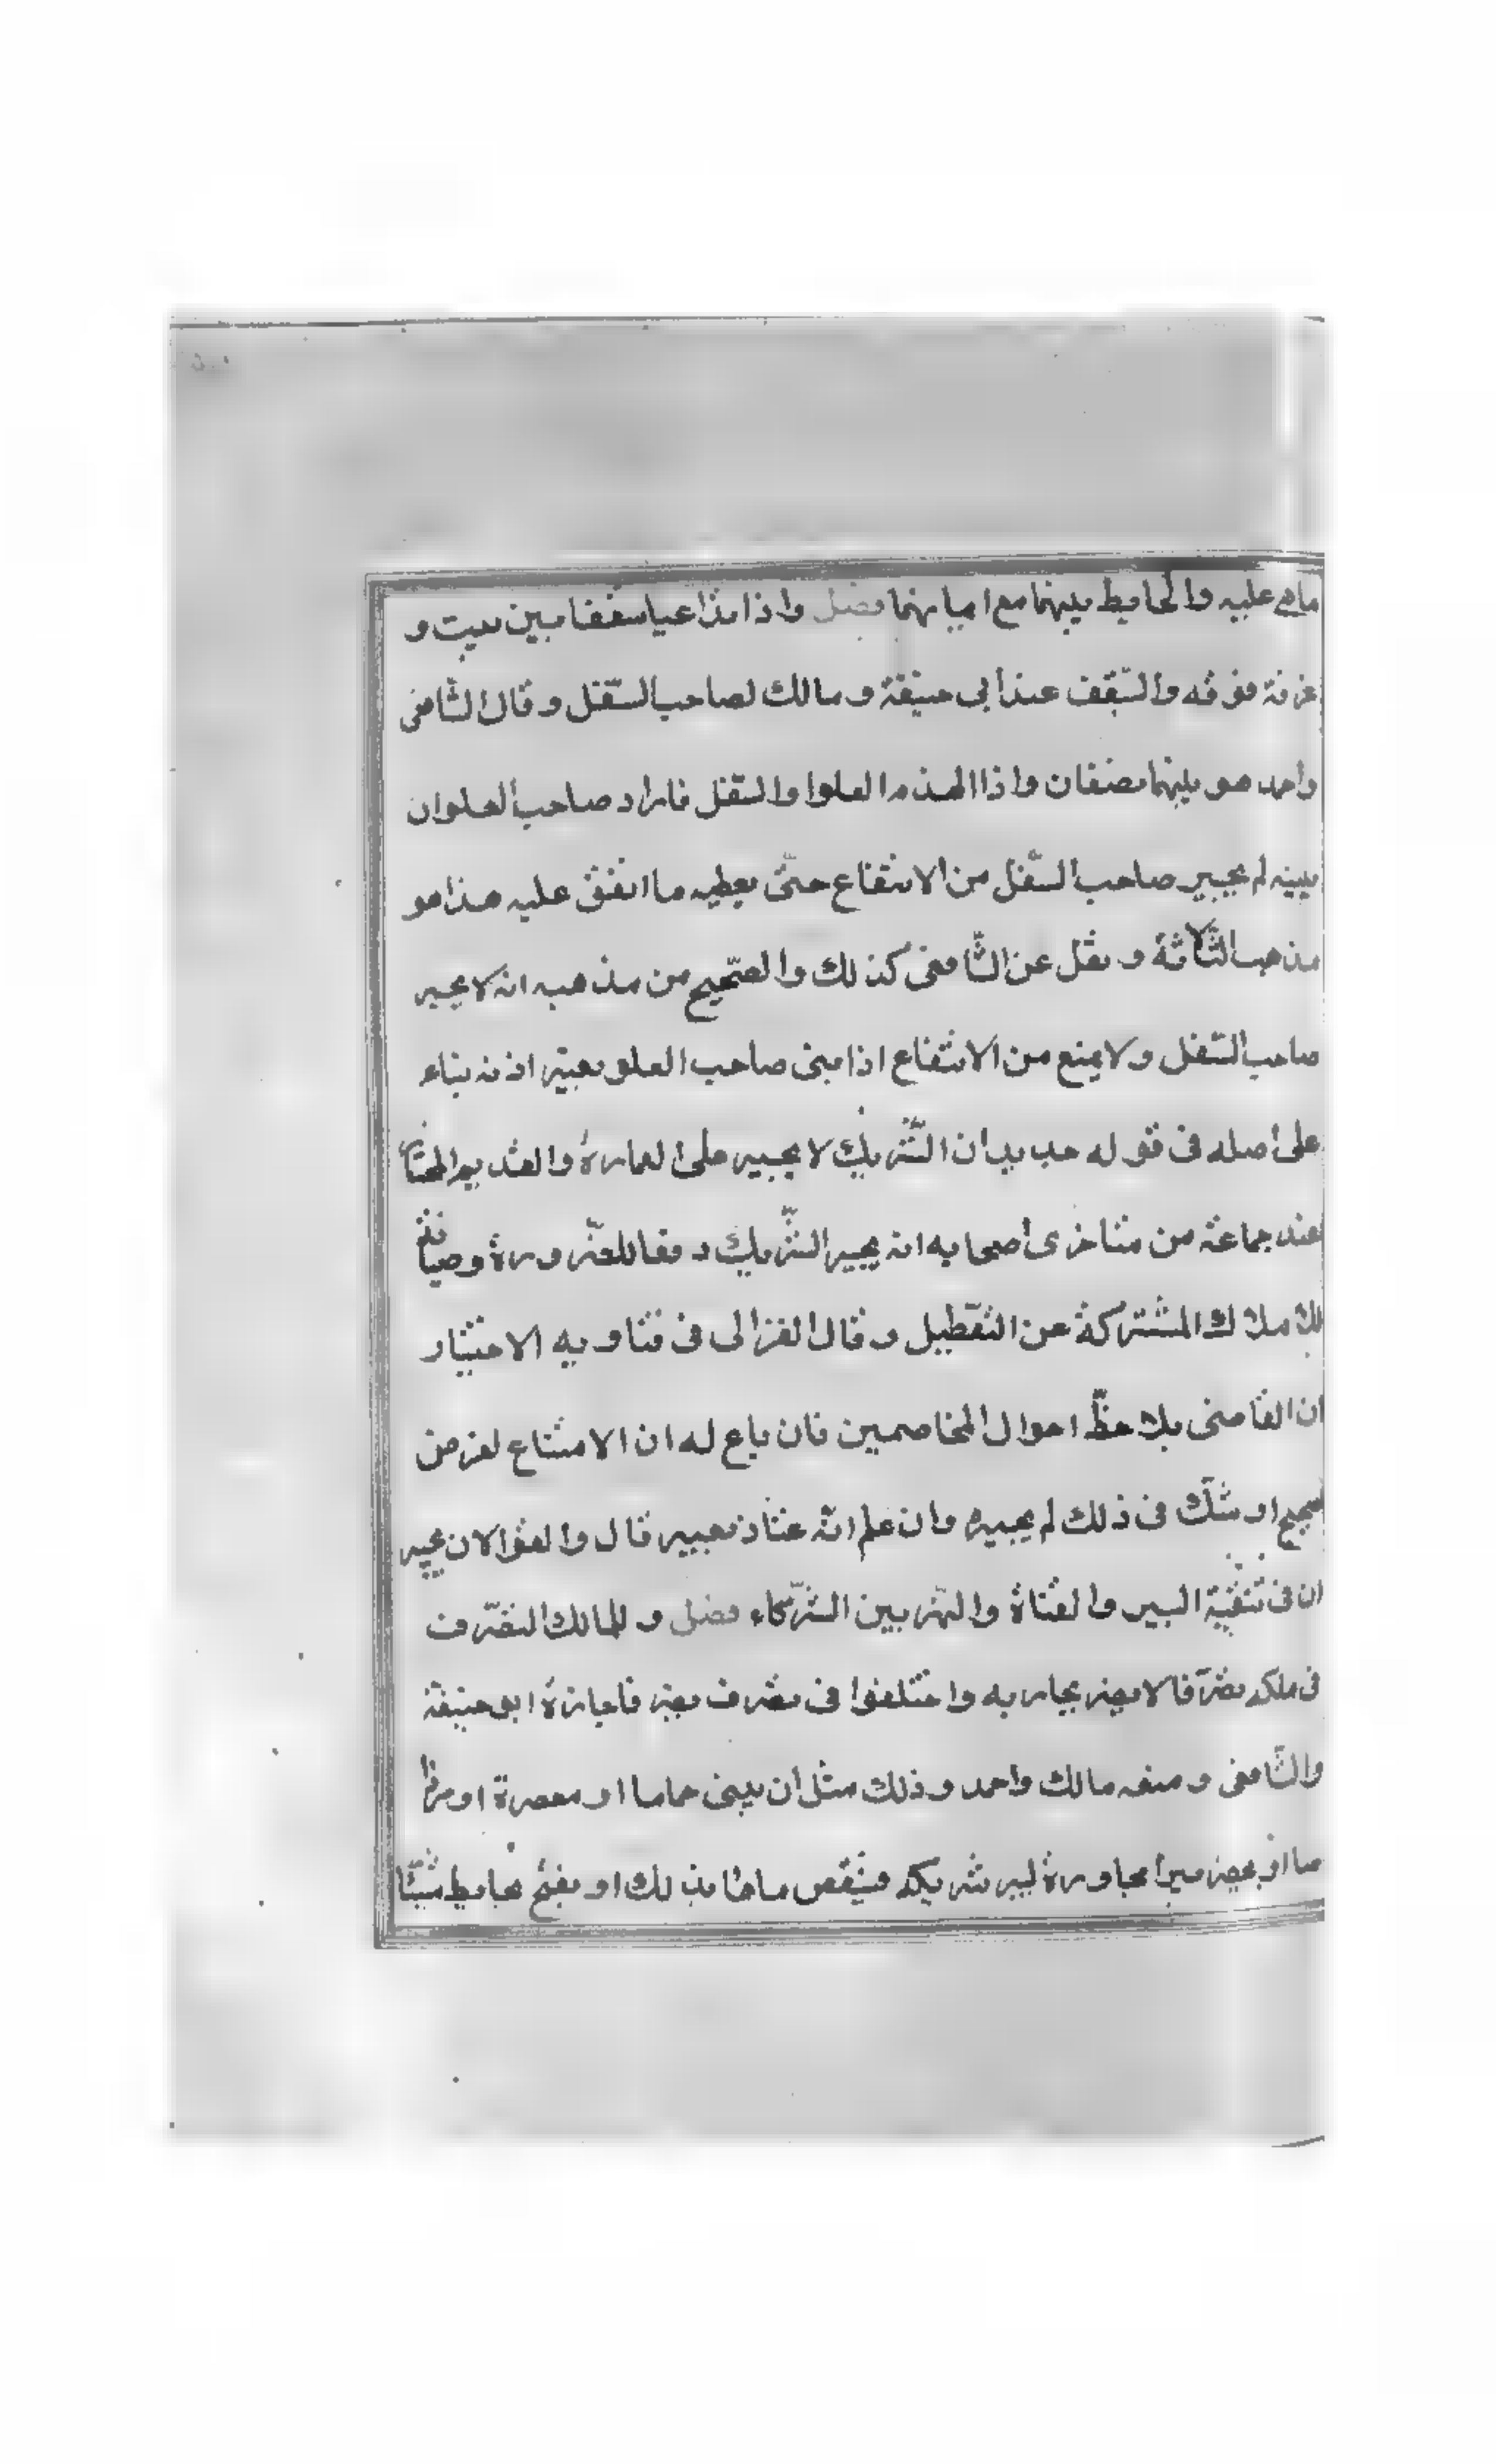 ما هي عليه والحايط بينهما مع ايمانهما فصل واذا تداعيا سقفا بين بيت و
غرفة فوقه والسّقف عند أبي حنيفة ومالك لصاحب السّفل وقال الشّافعي
واحمد هو بينهما نصفان واذا انهدم العلوا والسّفل فاراد صاحب العلو ان
يبنيه لم يجبر صاحب السّفل من الانتفاع حتّى يعطيه ما انفق عليه هذا هو
مذهب الثّلاثة ونقل عن الشّافعي كذلك والصّحيح من مذهبه انه لا يجبر
صاحب السّفل ولا يمنع من الانتفاع اذا بنى صاحب العلو بغير اذنه بناء
على اصله في قوله جديد ان الشّريك لا يجبر على العمارة والقديم المختار
عند جماعة من متاخرى أصحابه انه يجبر الشّريك دفعا للضّرورة وصيانة
للاملاك المشتركة عن التّعطيل وقال الغزالى في فتاويه الاختيار
ان القاضى يلاحظ احوال المخاصمين فان باع له ان الامتناع لغرض
صحيح او شكّ في ذلك لم يجبره وان علم انّه عنادٌ تجبير قال والقولان يجير
ان في تنقية البير والقناة والنّهر بين الشّركاء فصل وللمالك التصّرف
في ملكه تصرّفا لا يضر بجاريه واختلفوا في تصرف يضر فاجازه ابو حنيفة
والشّافعى ومنعه مالك واحمد وذلك مثل أن يبنى حماما او معصرة او مرحا
ضا او يحفر بيرا مجاورة لبير شريكه فينقص ماءها بذلك او يفتح بحايط شبّا